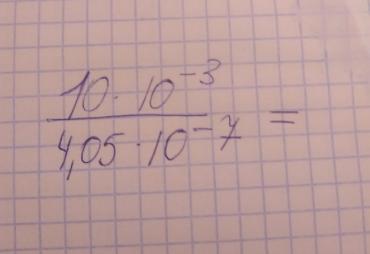 10 · 10⁻³
4,05 · 10⁻⁷ =